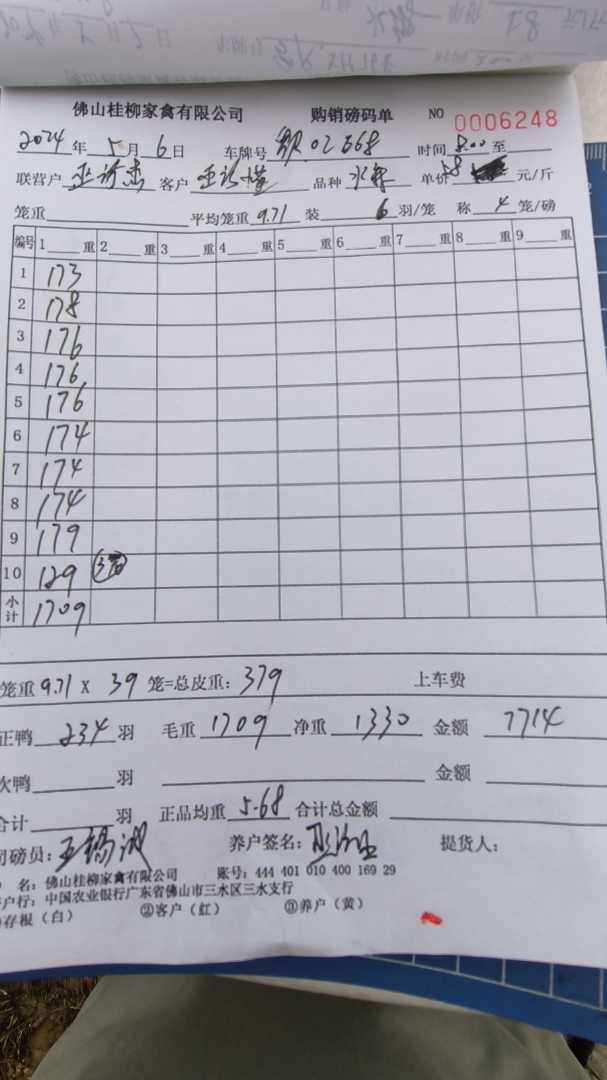 佛山桂柳家禽有限公司 购销磅码单 NO 0006248
2024年 5月 6日 车牌号 02668 时间 8:00 至
联营户 客户 品种 水鸭 单价 5.8 元/斤
笼重 平均笼重 9.71 装 6 羽/笼 称 4 笼/磅
编号 1 重 2 重 3 重 4 重 5 重 6 重 7 重 8 重 9 重
1 173
2 178
3 176
4 176
5 176
6 174
7 174
8 174
9 179
10 129
小计 1709
笼重 9.71 X 39 笼=总皮重: 379 上车费
正鸭 234 羽 毛重 1709 净重 1330 金额 7714
次鸭 羽 金额
合计 羽 正品均重 5.68 合计总金额
司磅员: 王锡波 养户签名: 提货人:
名: 佛山桂柳家禽有限公司 账号: 444 401 010 400 169 29
户行: 中国农业银行广东省佛山市三水区三水支行
存根(白) ②客户(红) ③养户(黄)